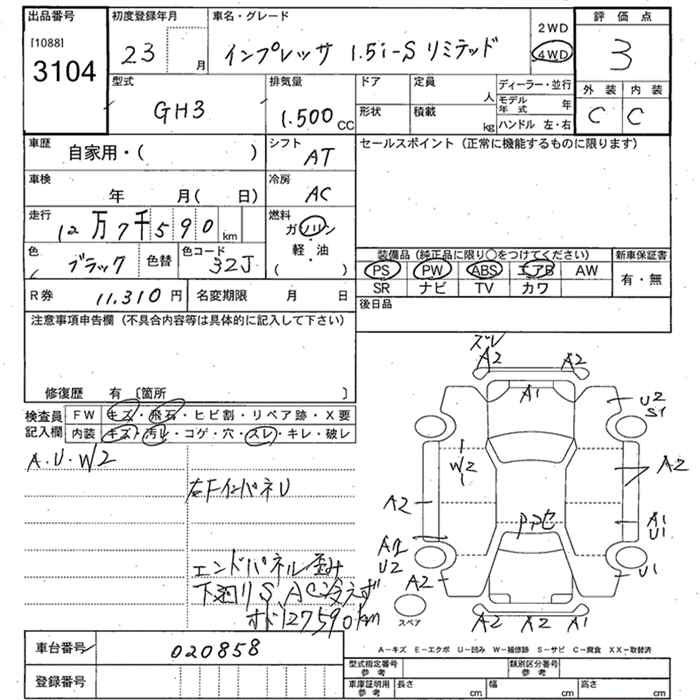 出品番号 初度登録年月 車名・グレード 評価点
[1088] 3104 23 月 インプレッサ 1.5i-S リミテッド 2WD 4WD 3
型式 GH3 排気量 1.500 CC ドア 定員 人 ディーラー・並行 外装 内装
形状 積載 kg モデル年式 年 C C
ハンドル 左・右
車歴 自家用・( ) シフト AT セールスポイント (正常に機能するものに限ります)
車検 年 月( 日) 冷房 AC
走行 12万7千590 km 燃料 ガソリン
軽・油
( )
色 ブラック 色替 色コード 32J
装備品 (純正品に限り○をつけてください) 新車保証書
PS PW ABS エアB AW 有・無
SR ナビ TV カワ
R券 11,310 円 名変期限 月 日 後日品
注意事項申告欄 (不具合内容等は具体的に記入して下さい)
修復歴 有 〔箇所 〕
検査員 FW キズ・飛石・ヒビ割・リペア跡・X要
記入欄 内装 キズ・汚レ・コゲ・穴・スレ・キレ・破レ
A.U.W2
左FインパネU
エンドパネル歪み
下廻りS、AC冷えず
オド127590km
ズレ
A2 A2
A1
U2
S1
W2
A2
A2
A1
U1
A2
U2
U1
A2
A2 A2 A1
スペア
A-キズ E-エクボ U-凹み W-補修跡 S-サビ C-腐食 XX-取替済
車台番号 020858
登録番号
型式指定番号 参考 類別区分番号 参考
車庫証明用 参考 長さ cm 幅 cm 高さ cm